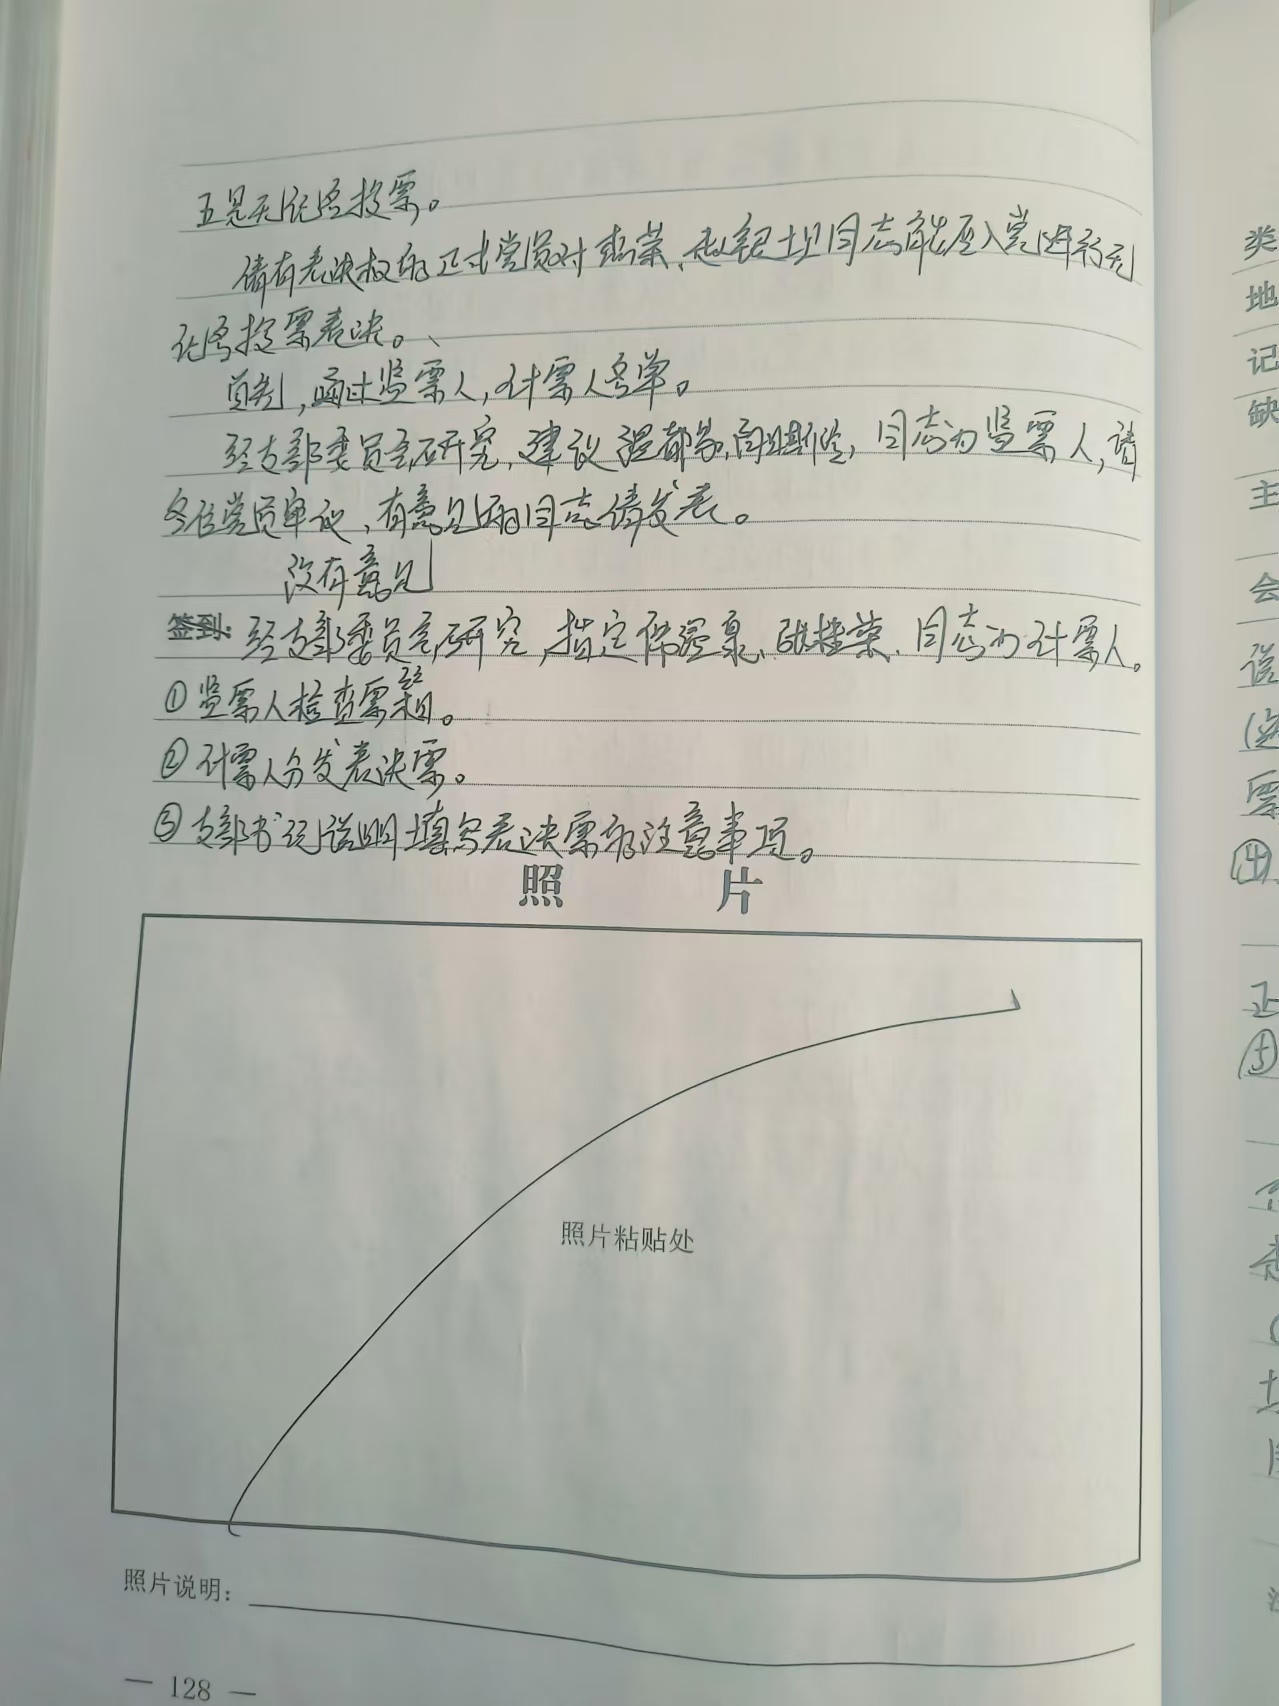 五是无记名投票。
请有表决权的正式党员对 荣、赵银 同志能否入党进行无
记名投票表决。
首先，通过监票人，计票人名单。
经支部委员会研究，建议 同志为监票人，请
各位党员审议，有意见的同志请发表。
没有意见
签到：经支部委员会研究，指定 同志为计票人。
①监票人检查票箱。
②计票人分发表决票。
③支部书记说明填写表决票的注意事项。
照 片
照片粘贴处
照片说明：
— 128 —
类
地
记
缺
主
会
票
④
正
⑤